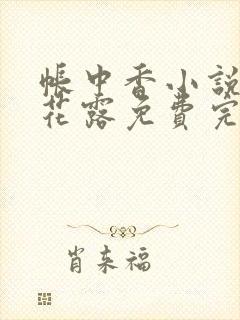 帐中香小說
花露免費完
肖来福